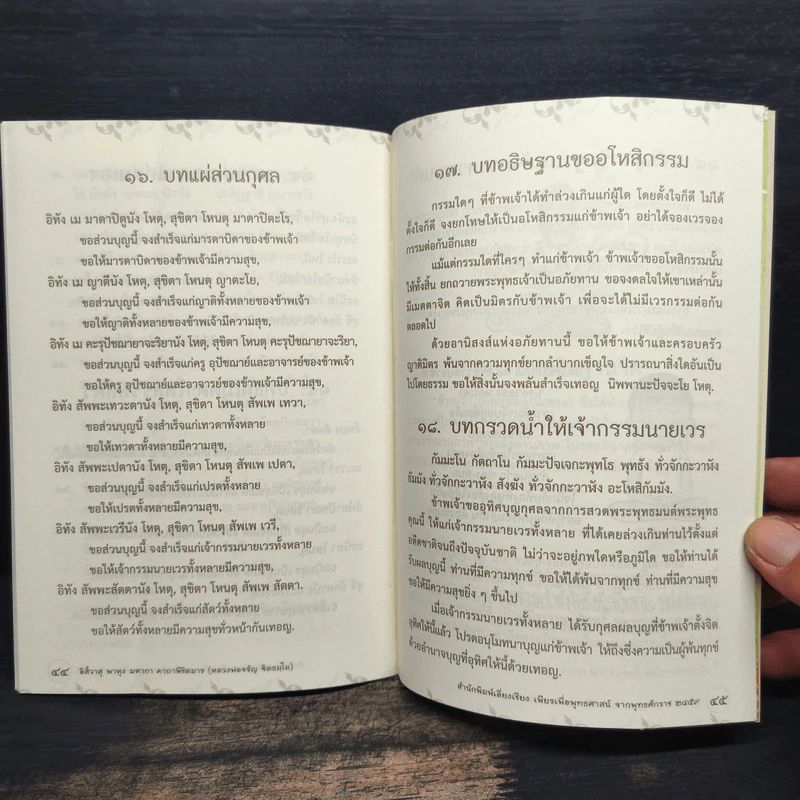 ๑๖. บทแผ่ส่วนกุศล
อิทัง เม มาตาปิตูนัง โหตุ, สุขิตา โหนตุ มาตาปิตะโร,
ขอส่วนบุญนี้ จงสำเร็จแก่มารดาบิดาของข้าพเจ้า
ขอให้มารดาบิดาของข้าพเจ้ามีความสุข,
อิทัง เม ญาตีนัง โหตุ, สุขิตา โหนตุ ญาตะโย,
ขอส่วนบุญนี้ จงสำเร็จแก่ญาติทั้งหลายของข้าพเจ้า
ขอให้ญาติทั้งหลายของข้าพเจ้ามีความสุข,
อิทัง เม คะรุปัชฌายาจะริยานัง โหตุ, สุขิตา โหนตุ คะรุปัชฌายาจะริยา,
ขอส่วนบุญนี้ จงสำเร็จแก่ครู อุปัชฌาย์และอาจารย์ของข้าพเจ้า
ขอให้ครู อุปัชฌาย์และอาจารย์ของข้าพเจ้ามีความสุข,
อิทัง สัพพะเทวะตานัง โหตุ, สุขิตา โหนตุ สัพเพ เทวา,
ขอส่วนบุญนี้ จงสำเร็จแก่เทวดาทั้งหลาย
ขอให้เทวดาทั้งหลายมีความสุข,
อิทัง สัพพะเปตานัง โหตุ, สุขิตา โหนตุ สัพเพ เปตา,
ขอส่วนบุญนี้ จงสำเร็จแก่เปรตทั้งหลาย
ขอให้เปรตทั้งหลายมีความสุข,
อิทัง สัพพะเวรีนัง โหตุ, สุขิตา โหนตุ สัพเพ เวรี,
ขอส่วนบุญนี้ จงสำเร็จแก่เจ้ากรรมนายเวรทั้งหลาย
ขอให้เจ้ากรรมนายเวรทั้งหลายมีความสุข,
อิทัง สัพพะสัตตานัง โหตุ, สุขิตา โหนตุ สัพเพ สัตตา.
ขอส่วนบุญนี้ จงสำเร็จแก่สัตว์ทั้งหลาย
ขอให้สัตว์ทั้งหลายมีความสุขทั่วหน้ากันเทอญ.
๔๔ อิสิ์วาสุ พาหุง มหากา คาถาพิชิตมาร (หลวงพ่อจรัญ ฐิตธมฺโม)
๑๗. บทอธิษฐานขออโหสิกรรม
กรรมใดๆ ที่ข้าพเจ้าได้ทำล่วงเกินแก่ผู้ใด โดยตั้งใจก็ดี ไม่ได้
ตั้งใจก็ดี จงยกโทษให้เป็นอโหสิกรรมแก่ข้าพเจ้า อย่าได้จองเวรจอง
กรรมต่อกันอีกเลย
แม้แต่กรรมใดที่ใครๆ ทำแก่ข้าพเจ้า ข้าพเจ้าขออโหสิกรรมนั้น
ให้ทั้งสิ้น ยกถวายพระพุทธเจ้าเป็นอภัยทาน ขอจงดลใจให้เขาเหล่านั้น
มีเมตตาจิต คิดเป็นมิตรกับข้าพเจ้า เพื่อจะได้ไม่มีเวรกรรมต่อกัน
ตลอดไป
ด้วยอานิสงส์แห่งอภัยทานนี้ ขอให้ข้าพเจ้าและครอบครัว
ญาติมิตร พ้นจากความทุกข์ยากลำบากเข็ญใจ ปรารถนาสิ่งใดอันเป็น
ไปโดยธรรม ขอให้สิ่งนั้นจงพลันสำเร็จเทอญ นิพพานะปัจจะโย โหตุ.
๑๘. บทกรวดน้ำให้เจ้ากรรมนายเวร
กัมมะโน กัตถาโน กัมมะปัจเจกะพุทโธ พุทธัง ทั่วจักกะวาฬัง
ธัมมัง ทั่วจักกะวาฬัง สังฆัง ทั่วจักกะวาฬัง อะโหสิกัมมัง.
ข้าพเจ้าขออุทิศบุญกุศลจากการสวดพระพุทธมนต์พระพุทธ
คุณนี้ ให้แก่เจ้ากรรมนายเวรทั้งหลาย ที่ได้เคยล่วงเกินท่านไว้ตั้งแต่
อดีตชาติจนถึงปัจจุบันชาติ ไม่ว่าจะอยู่ภพใดหรือภูมิใด ขอให้ท่านได้
รับผลบุญนี้ ท่านที่มีความทุกข์ ขอให้ได้พ้นจากทุกข์ ท่านที่มีความสุข
ขอให้มีความสุขยิ่ง ๆ ขึ้นไป
เมื่อเจ้ากรรมนายเวรทั้งหลาย ได้รับกุศลผลบุญที่ข้าพเจ้าตั้งจิต
อุทิศให้นี้แล้ว โปรดอนุโมทนาบุญแก่ข้าพเจ้า ให้ถึงซึ่งความเป็นผู้พ้นทุกข์
ด้วยอำนาจบุญที่อุทิศให้นี้ด้วยเทอญ.
สำนักพิมพ์เลี่ยงเชียง เพียรเพื่อพุทธศาสน์ จากพุทธศักราช ๒๔๕๙ ๔๕